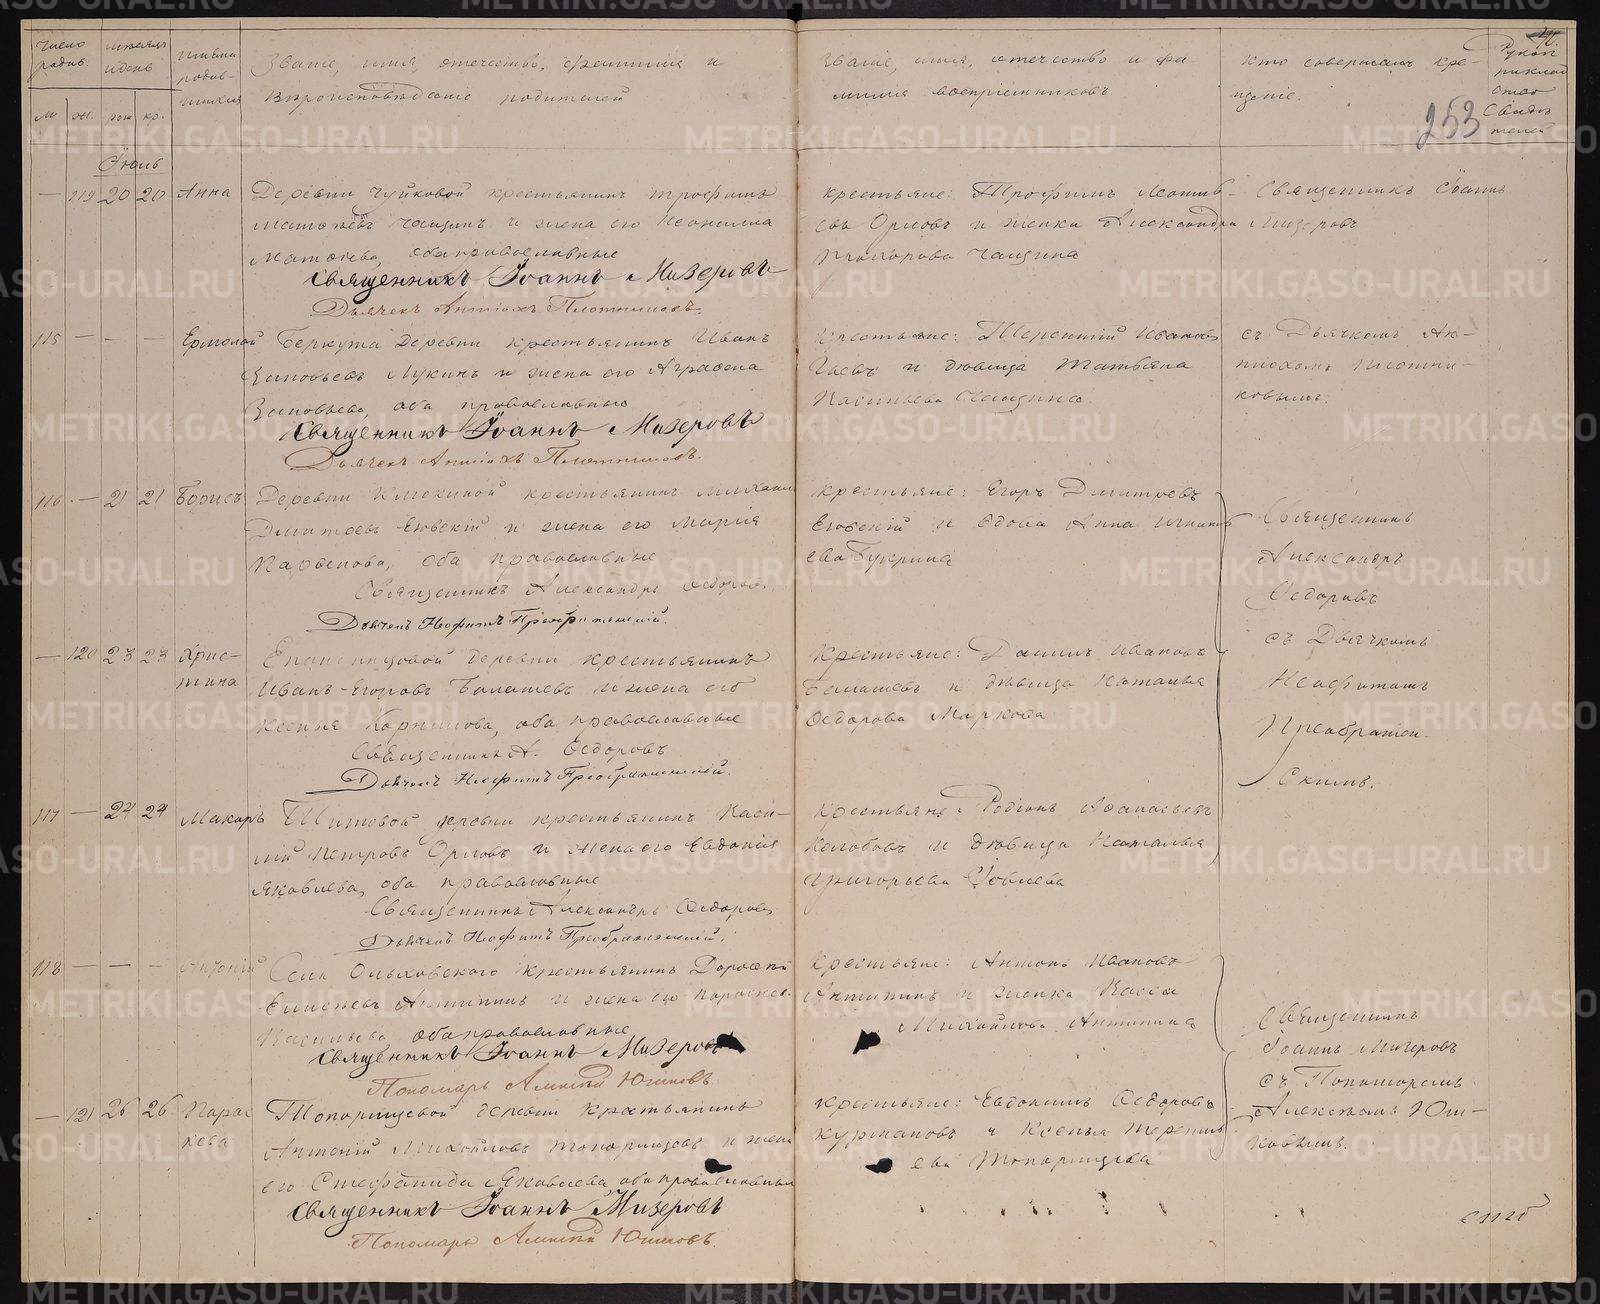 Число родив.
Мѣсяцъ и день
Имена родив-
шихся
Званіе, имя, отчество, фамилія и
Вѣроисповѣданіе родителей
Званіе, имя, отчество и фа-
милія воспріемниковъ.
Кто совершалъ кре-
щеніе.
253
м ж. рож кр.
Іюль
— 119 20 20 Анна
Деревни Чуйковой крестьянинъ Трофимъ
Чащинъ и жена его Неонилла
Матѳеева, оба православные
Священникъ Іоаннъ Мизеровъ
Дьячекъ Антіохъ Плотниковъ.
крестьяне: Трофимъ Леонтьевъ Орловъ и женка Александра
Прохорова Чащина
Священникъ Іоаннъ
Мизеровъ
115 — — — Ермолай
Беркута деревни крестьянинъ Иванъ
Зиновьевъ Лукинъ и жена его Аграфена
Зиновьева, оба православные
Священникъ Іоаннъ Мизеровъ
Дьячекъ Антіохъ Плотниковъ.
Крестьяне: Терентій Ивановъ
и дѣвица Татьяна
Васильева Чащина.
съ Дьячкомъ Ан-
тіохомъ Плотни-
ковымъ.
116 — 21 21 Борисъ
Деревни Клюкиной крестьянинъ Михаилъ
Дмитревъ Еговскій и жена его Марія
Парѳенова, оба православные
Священникъ Александръ Ѳедоровъ
Дьячекъ Неофитъ Преображенскій.
крестьяне: Егоръ Дмитревъ
Еговскій и вдова Анна Игнать
ева Бунерина
Священникъ
Александръ
Ѳедоровъ
съ Дьячкомъ
Неофитомъ
Преображен-
скимъ.
— 120 23 23 Хрис-
тина
Епанчинцовой деревни крестьянинъ
Иванъ Егоровъ Балашевъ и жена его
Ксенья Корнилова, оба православные
Священникъ А. Ѳедоровъ
Дьячекъ Неофитъ Преображенскій.
Крестьяне: Даніилъ Ивановъ
Балашевъ и дѣвица Наталья
Ѳедорова Маркова
117 — 24 24 Макаръ
Титовой деревни крестьянинъ Васи-
лій Петровъ Орловъ и жена его Евдокія
Яковлева, оба православные
Священникъ Александръ Ѳедоровъ
Дьячекъ Неофитъ Преображенскій.
Крестьяне Родіонъ Аѳанасьевъ
Колобовъ и дѣвица Наталья
Григорьева
118 — — — Антоній
Села Ольховскаго крестьянинъ Дороѳей
Елисѣевъ Антипинъ и жена его Параскев.
Васильева оба православные
Священникъ Іоаннъ Мизеровъ
Пономарь Алексѣй Юшковъ.
Крестьяне: Антонъ Ивановъ
Антипинъ и женка Васса
Михайлова Антипина
Священникъ
Іоаннъ Мизеровъ
съ Пономаремъ
Алексѣемъ Юш-
ковымъ.
— 121 26 26 Парас
кева
Топорищевой деревни крестьянинъ
Антоній Михайловъ Топорищевъ и жена
его Стефанида Яковлева оба православные
Священникъ Іоаннъ Мизеровъ
Пономарь Алексѣй Юшковъ.
крестьяне: Евдокимъ Ѳедоровъ
Курмановъ и Ксенья Теренть
ева Топорищева
METRIKI.GASO-URAL.RU